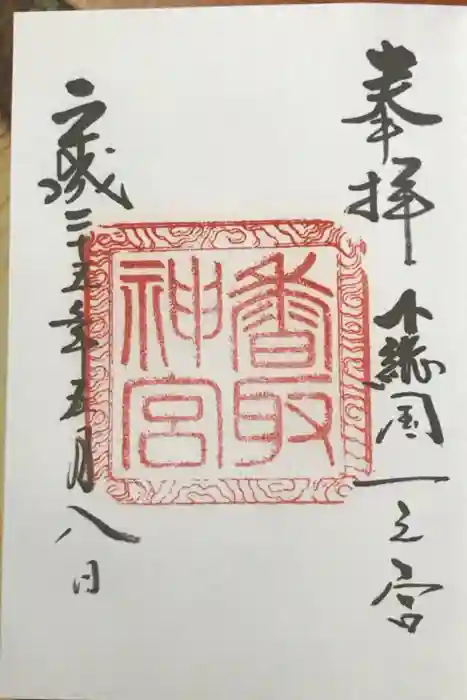 奉拝 下総国一之宮
香取
神宮
平成二十五年五月八日